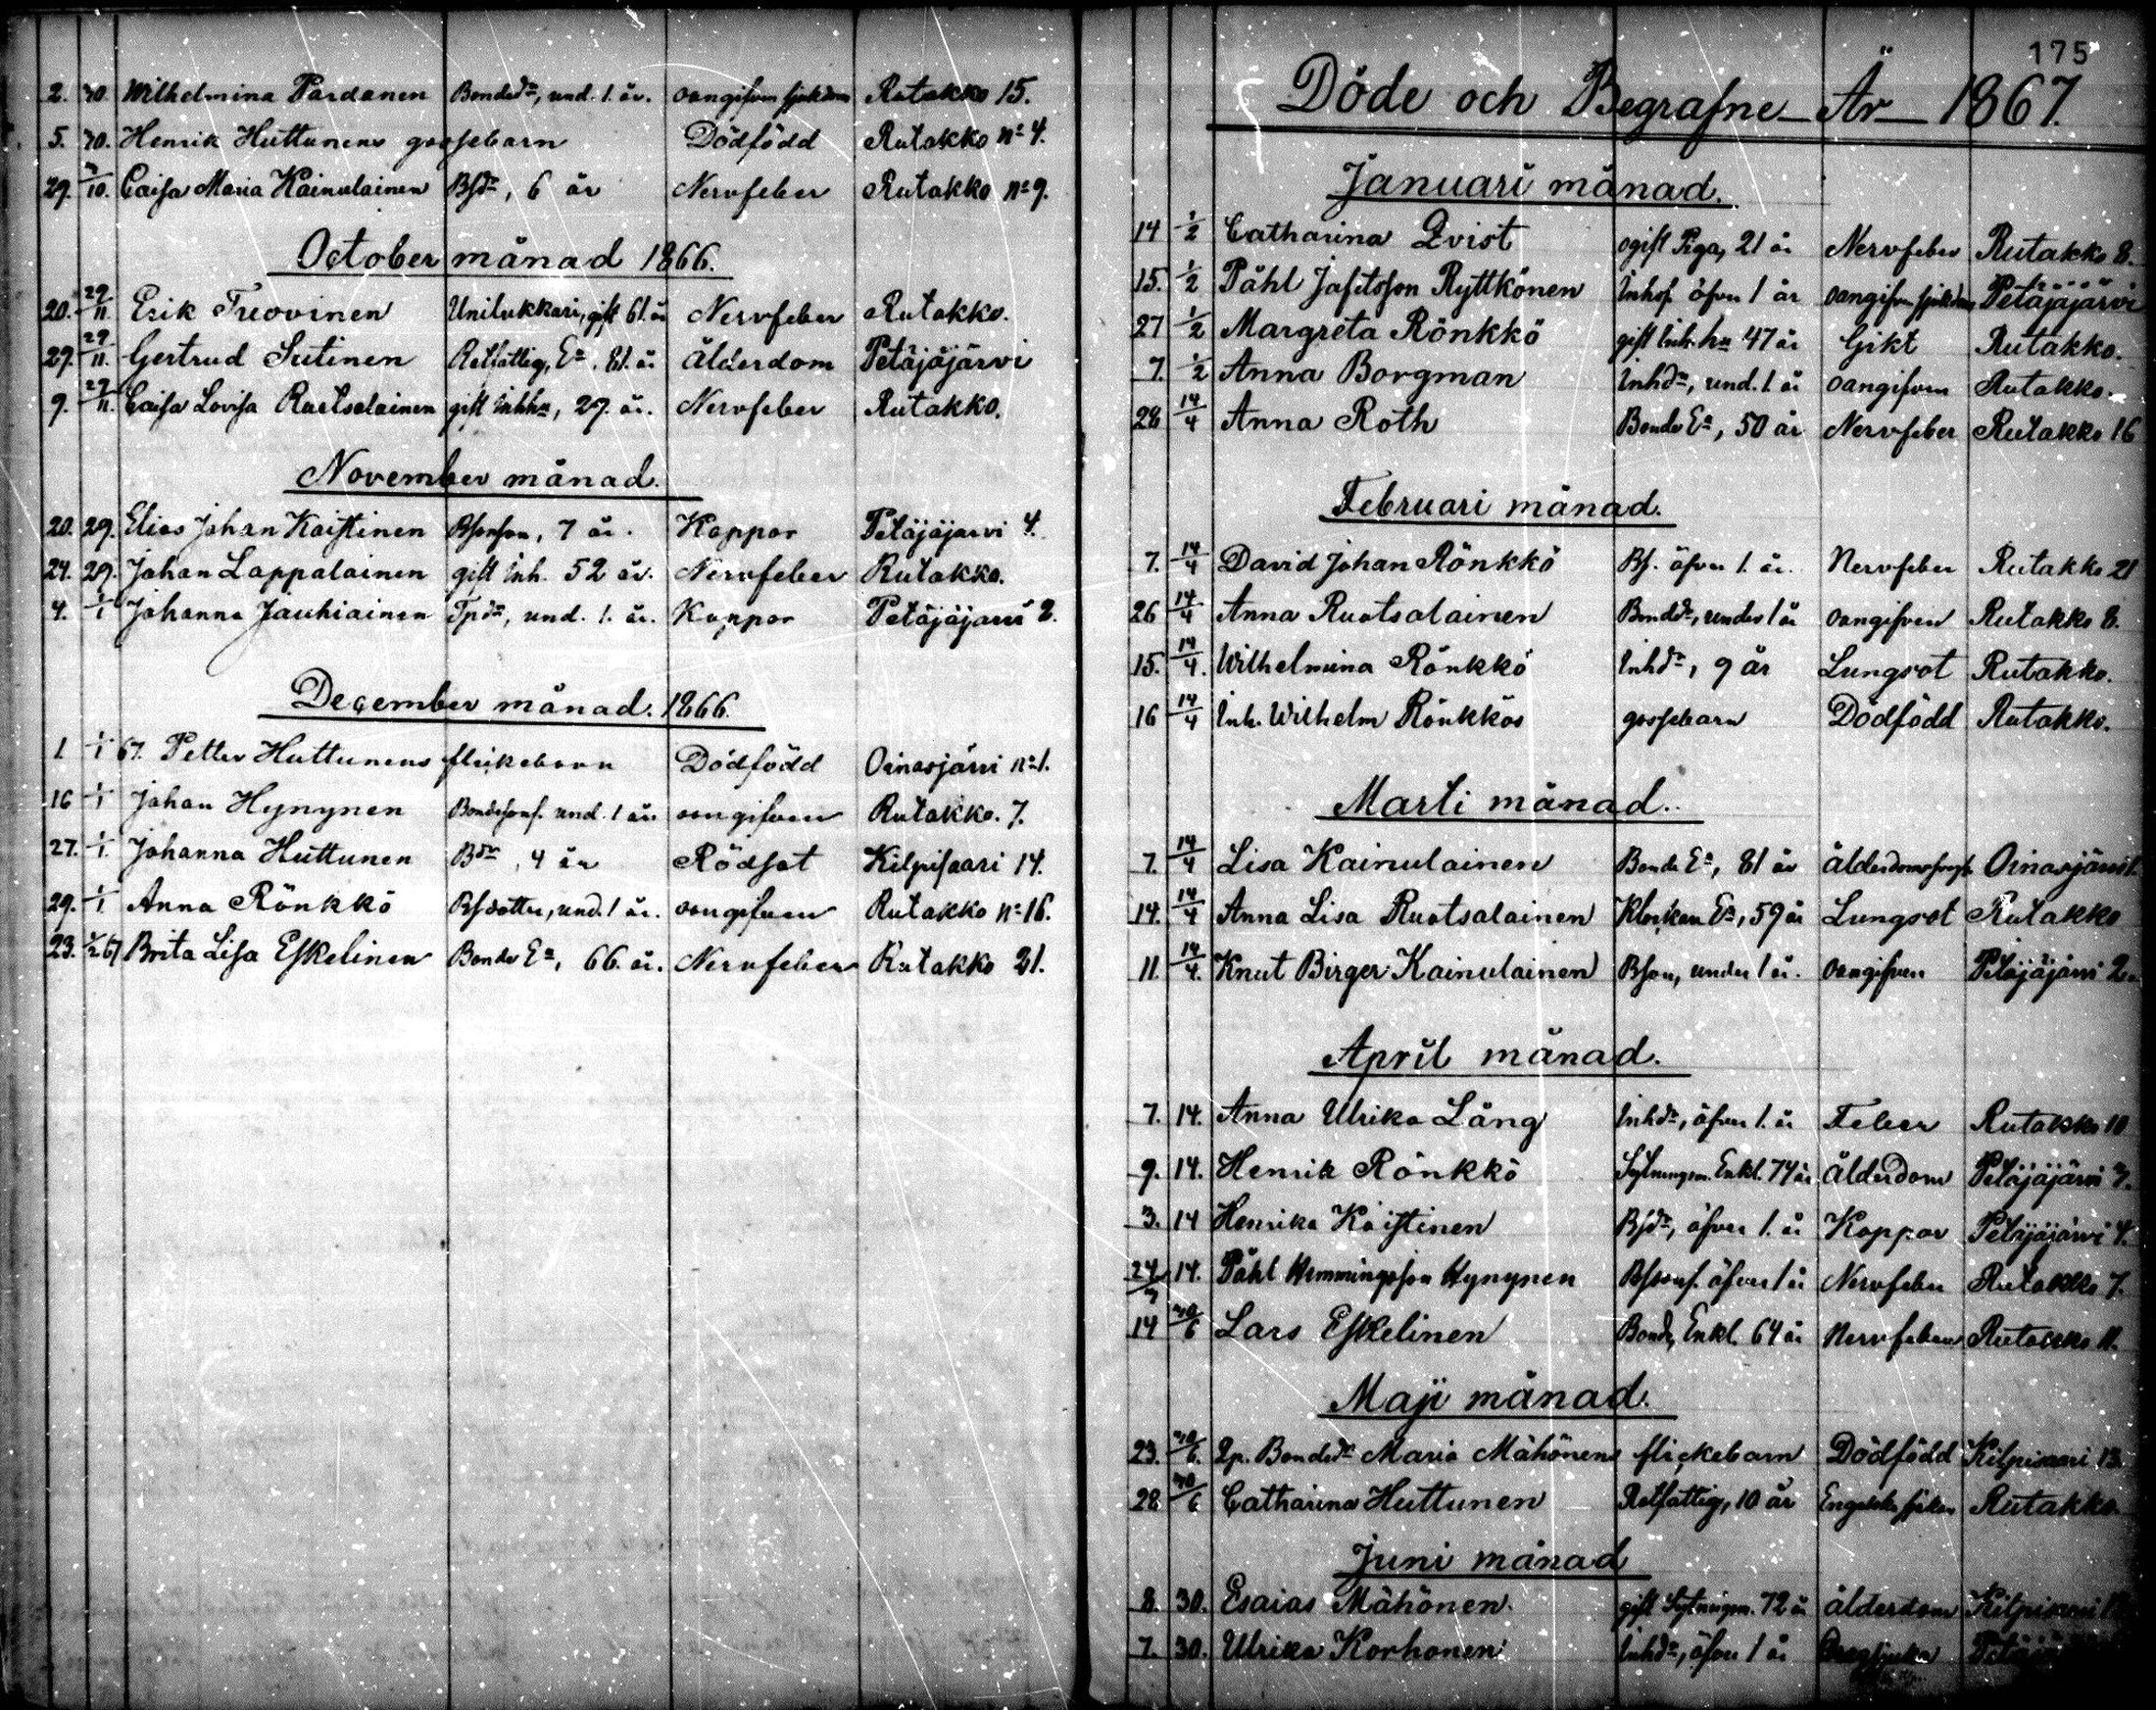 2. 30. Wilhelmina Pardanen Bondedr, und. 1. år. oangifven sjukdom Rutakko 15.
5. 30. Henrik Huttunens gossebarn Dödfödd Rutakko no 4.
29. 7/10. Caisa Maria Kainulainen Bsdr, 6 år Nervfeber Rutakko no 9.
October månad 1866.
20. 29/11 Erik Tuovinen Unilukkari, gift 61. år Nervfeber Rutakko.
27. 29/11. Gertrud Sutinen Rotfattig, Ea. 81. år Ålderdom Petäjäjärvi
9. 29/11. Caisa Lovisa Ruotsalainen gift Inhhu, 27. år. Nervfeber Rutakko.
November månad.
20. 29. Elias Johan Koistinen Bsonson, 7 år. Koppor Petäjäjärvi 4.
24. 29. Johan Lappalainen gift Inh. 52 år. Nervfeber Rutakko.
4. 1/1 Johanna Jauhiainen Tpdr, und. 1. år. Koppor Petäjäjärvi 2.
December månad. 1866.
1. 1/1 67. Petter Huttunens flickebarn Dödfödd Oinasjärvi no 1.
16 1/1 Johan Hynynen Bondesons. und. 1 år oangifven Rutakko. 7.
27. 1/1. Johanna Huttunen Bdr, 4 år Rödsot Kilpisaari 14.
29. 1/1 Anna Rönkkö Bsdotter, und. 1 år. oangifven Rutakko no 16.
23. 1/2 67 Brita Lisa Eskelinen Bonde Ea, 66. år. Nervfeber Rutakko 21.
175
Döde och Begrafne År 1867.
Januari månad.
14 1/2 Catharina Qvist ogift Piga, 21 år Nervfeber Rutakko 8.
15. 1/2 Påhl Jafetsson Ryttkönen Inhs. öfver 1 år oangifven sjukdom Petäjäjärvi
27 1/2 Margreta Rönkkö gift Inh.hu 47 år Gikt Rutakko.
7. 1/2 Anna Borgman Inhdr, und. 1. år oangifven Rutakko.
28 14/4 Anna Roth Bonde Ea, 50 år Nervfeber Rutakko 16
Februari månad.
7. 14/4 David Johan Rönkkö Bs. öfver 1. år. Nervfeber Rutakko 21
26 14/4 Anna Ruotsalainen Bondedr, under 1 år oangifven Rutakko 8.
15. 14/4. Wilhelmina Rönkkö Inhdr, 9 år Lungsot Rutakko.
16 14/4 Inh. Wilhelm Rönkkös gossebarn Dödfödd Rutakko.
Marti månad.
7. 14/4 Lisa Kainulainen Bonde Ea, 81 år Oinasjärvi 1.
14. 14/4 Anna Lisa Ruotsalainen Klockare Ea, 59 år Lungsot Rutakko
11. 14/4. Knut Birger Kainulainen Bson, under 1 år. oangifven Petäjäjärvi 2.
April månad.
7. 14. Anna Ulrika Lång Inhdr, öfver 1. år Feber Rutakko 10
9. 14. Henrik Rönkkö Sytningsm. Enkl. 74 år Ålderdom Petäjäjärvi 7.
3. 14 Henrika Koistinen Bsdr, öfver 1. år Koppor Petäjäjärvi 4.
24/3 14. Påhl Hemmingsson Hynynen Bssons. öfver 1 år Nervfeber Rutakko 7.
14 30/6 Lars Eskelinen Bonde, Enkl. 64 år Nervfeber Rutakko 11.
Maji månad.
23. 30/6. Lp. Bondedr Maria Mähönens flickebarn Dödfödd Kilpisaari 13.
28 30/6 Catharina Huttunen Rotfattig, 10 år Engelska sjukan Rutakko.
Juni månad
8. 30. Esaias Mähönen. gift Sytningsm. 72 år Ålderdom Kilpisaari
7. 30. Ulrika Korhonen Inhdr, öfver 1 år